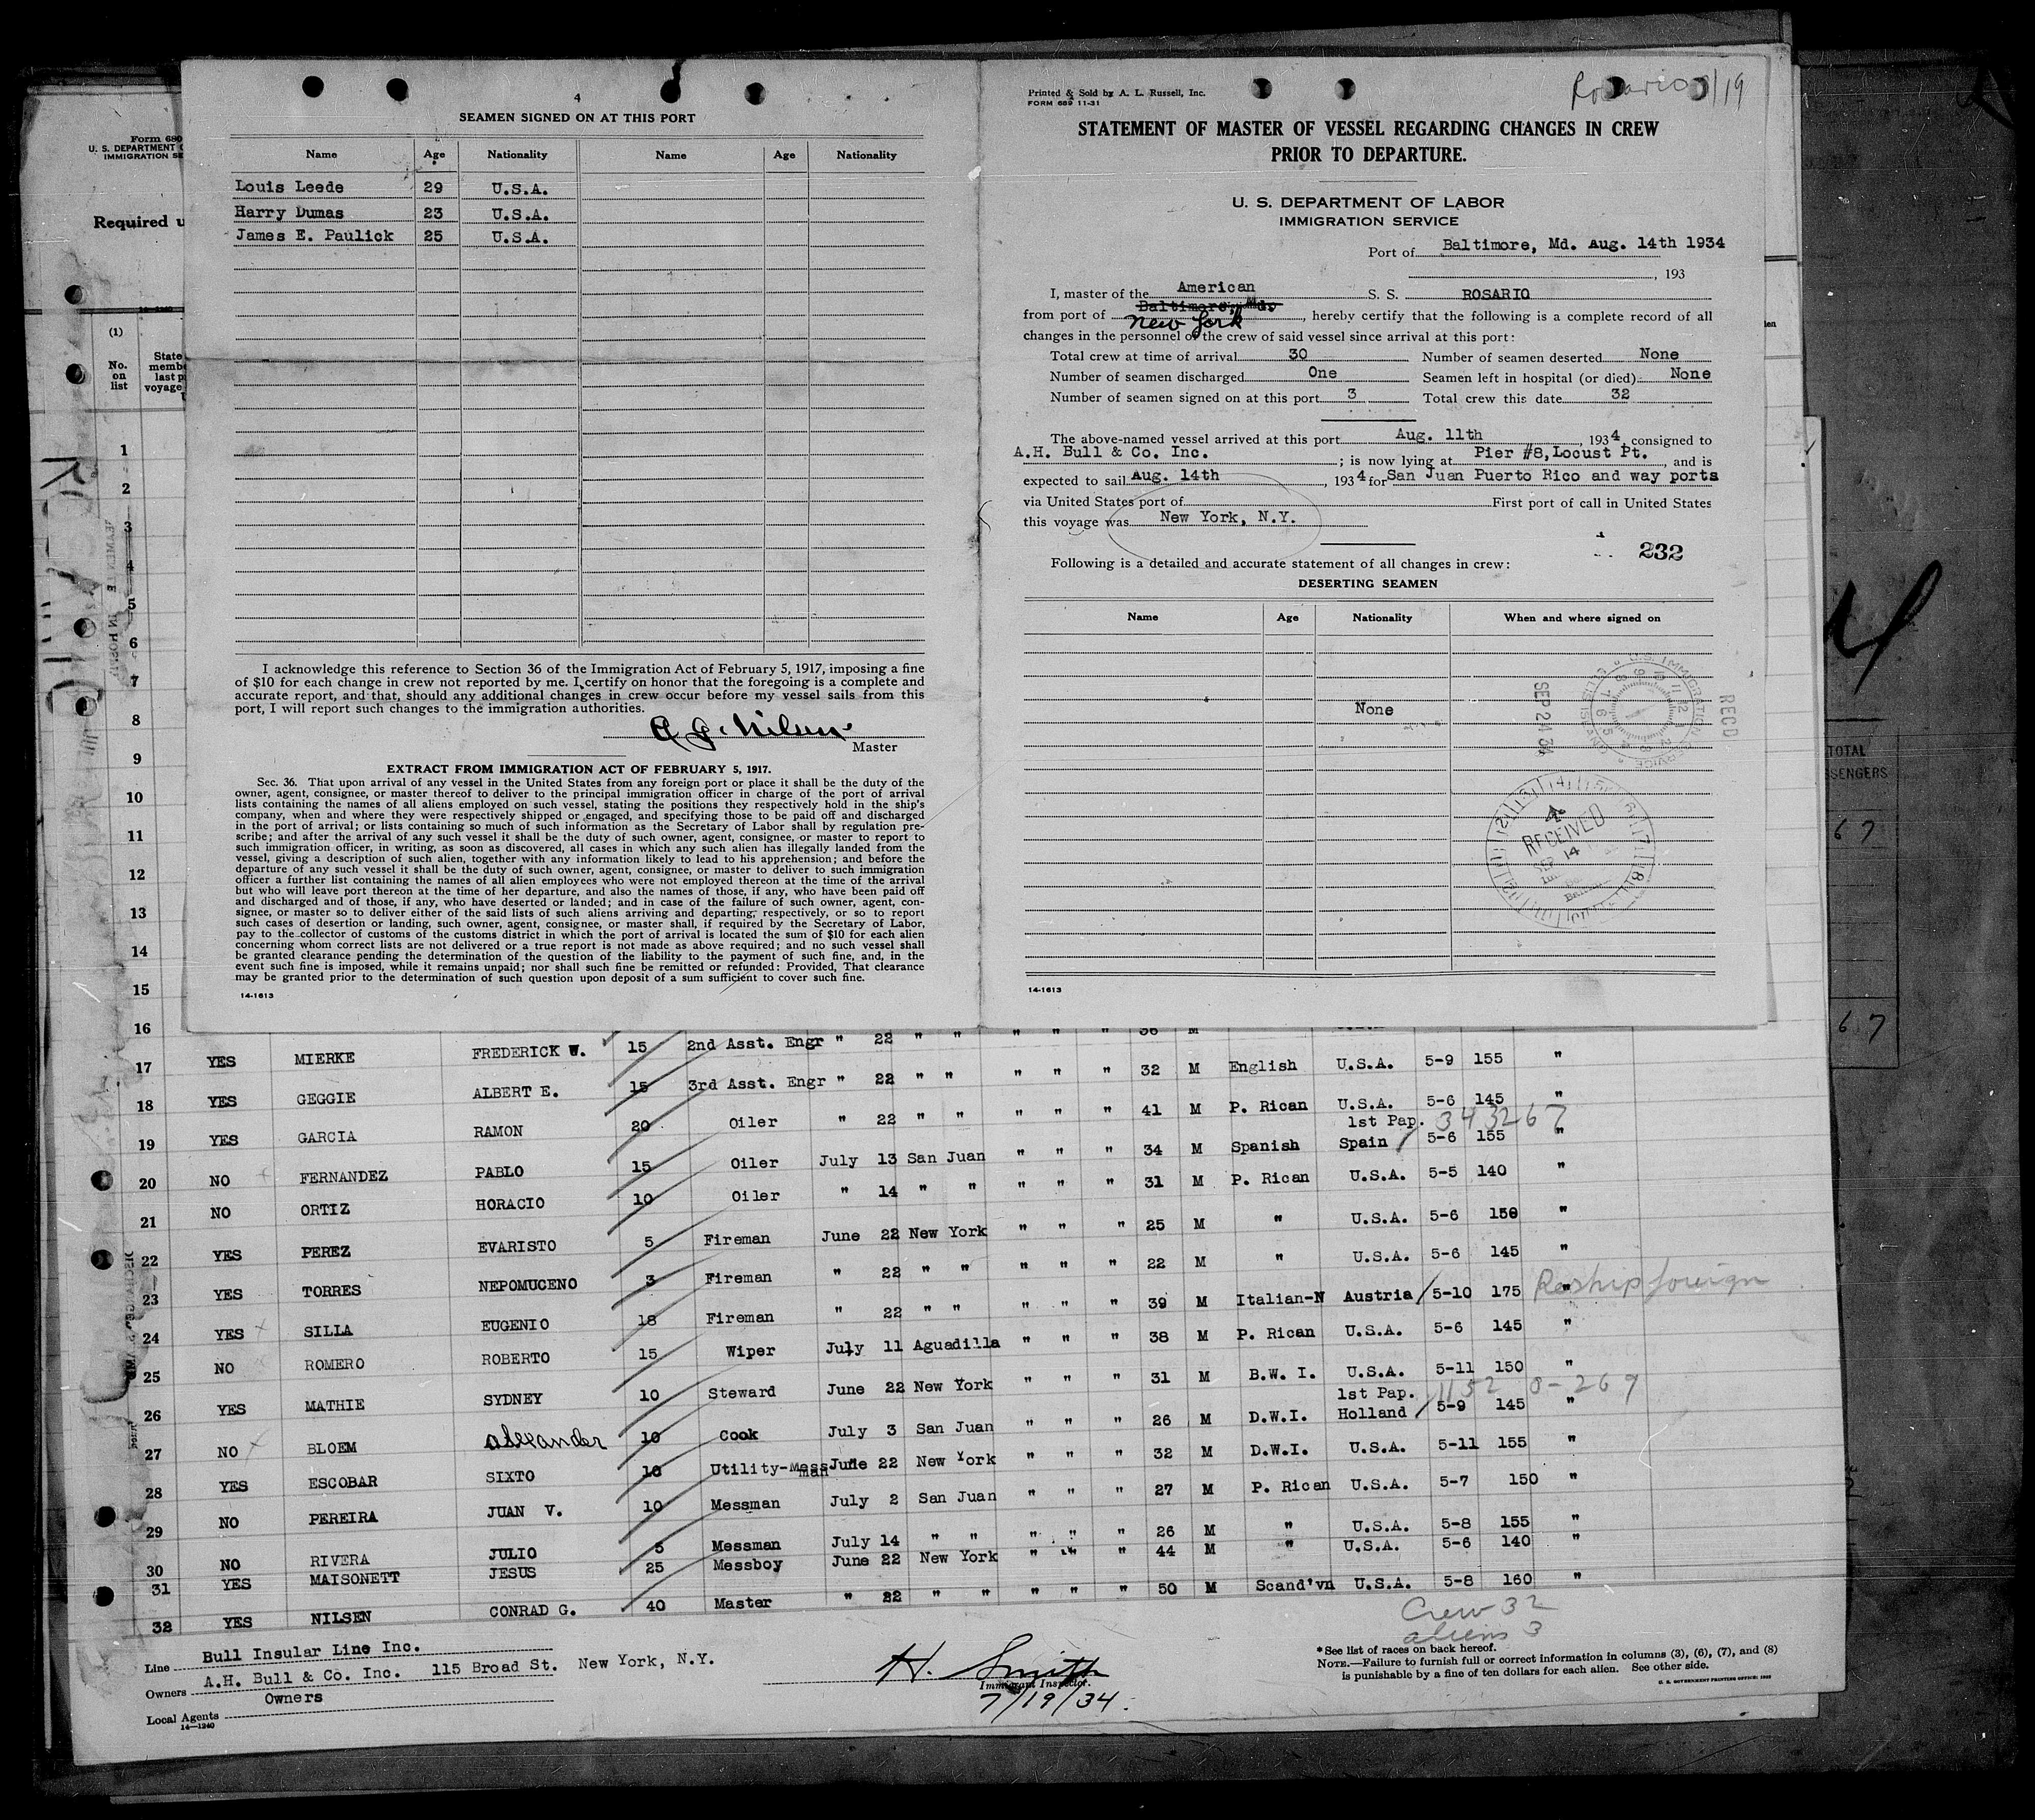 4
SEAMEN SIGNED ON AT THIS PORT
Name Age Nationality Name Age Nationality
Louis Leede 29 U.S.A.
Harry Dumas 23 U.S.A.
James E. Paulick 25 U.S.A.
I acknowledge this reference to Section 36 of the Immigration Act of February 5, 1917, imposing a fine
of $10 for each change in crew not reported by me. I certify on honor that the foregoing is a complete and
accurate report, and that, should any additional changes in crew occur before my vessel sails from this
port, I will report such changes to the immigration authorities.
Master
EXTRACT FROM IMMIGRATION ACT OF FEBRUARY 5, 1917.
Sec. 36. That upon arrival of any vessel in the United States from any foreign port or place it shall be the duty of the
owner, agent, consignee, or master thereof to deliver to the principal immigration officer in charge of the port of arrival
lists containing the names of all aliens employed on such vessel, stating the positions they respectively hold in the ship's
company, when and where they were respectively shipped or engaged, and specifying those to be paid off and discharged
in the port of arrival; or lists containing so much of such information as the Secretary of Labor shall by regulation pre-
scribe; and after the arrival of any such vessel it shall be the duty of such owner, agent, consignee, or master to report to
such immigration officer, in writing, as soon as discovered, all cases in which any such alien has illegally landed from the
vessel, giving a description of such alien, together with any information likely to lead to his apprehension; and before the
departure of any such vessel it shall be the duty of such owner, agent, consignee, or master to deliver to such immigration
officer a further list containing the names of all alien employees who were not employed thereon at the time of the arrival
but who will leave port thereon at the time of her departure, and also the names of those, if any, who have been paid off
and discharged and of those, if any, who have deserted or landed; and in case of the failure of such owner, agent, con-
signee, or master so to deliver either of the said lists of such aliens arriving and departing, respectively, or so to report
such cases of desertion or landing, such owner, agent, consignee, or master shall, if required by the Secretary of Labor,
pay to the collector of customs of the customs district in which the port of arrival is located the sum of $10 for each alien
concerning whom correct lists are not delivered or a true report is not made as above required; and no such vessel shall
be granted clearance pending the determination of the question of the liability to the payment of such fine, and, in the
event such fine is imposed, while it remains unpaid; nor shall such fine be remitted or refunded: Provided, That clearance
may be granted prior to the determination of such question upon deposit of a sum sufficient to cover such fine.
14-1613
Printed & Sold by A. L. Russell, Inc.
FORM 689 11-31
STATEMENT OF MASTER OF VESSEL REGARDING CHANGES IN CREW
PRIOR TO DEPARTURE.
U. S. DEPARTMENT OF LABOR
IMMIGRATION SERVICE
Port of Baltimore, Md. Aug. 14th 1934
, 193
I, master of the American S. S. ROSARIO
Baltimore, Md.
from port of New York, hereby certify that the following is a complete record of all
changes in the personnel of the crew of said vessel since arrival at this port:
Total crew at time of arrival 30 Number of seamen deserted None
Number of seamen discharged One Seamen left in hospital (or died) None
Number of seamen signed on at this port 3 Total crew this date 32
The above-named vessel arrived at this port Aug. 11th, 1934, consigned to
A.H. Bull & Co. Inc.; is now lying at Pier #8, Locust Pt., and is
expected to sail Aug. 14th, 1934 for San Juan Puerto Rico and way ports
via United States port of First port of call in United States
this voyage was New York, N.Y.
232
Following is a detailed and accurate statement of all changes in crew:
DESERTING SEAMEN
Name Age Nationality When and where signed on
None
REC'D
SEP 24 34
RECEIVED
SEP 14
14-1613
Form 680
U. S. DEPARTMENT
IMMIGRATION
Required
(1)
No. on list
State
last
voyage
1
2
3
4
5
6
7
8
9
10
11
12
13
14
15
16
TOTAL
67
67
2nd Asst. Engr " 22 " " " " " 36 M
17 YES MIERKE FREDERICK W. 15 3rd Asst. Engr " 22 " " " " " 32 M English U.S.A. 5-9 155 "
18 YES GEGGIE ALBERT E. 15 Oiler " 22 " " " " " 41 M P. Rican U.S.A. 5-6 145 "
1st Pap. 343267
19 YES GARCIA RAMON 20 Oiler July 13 San Juan " " " 34 M Spanish Spain 5-6 155 "
20 NO FERNANDEZ PABLO 15 Oiler " 14 " " " " " 31 M P. Rican U.S.A. 5-5 140 "
21 NO ORTIZ HORACIO 10 Fireman June 22 New York " " " 25 M " U.S.A. 5-6 150 "
22 YES PEREZ EVARISTO 5 Fireman " 22 " " " " " 22 M " U.S.A. 5-6 145 "
23 YES TORRES NEPOMUCENO 3 Fireman " 22 " " " " " 39 M Italian-N Austria 5-10 175 " Reship foreign
24 YES SILLA EUGENIO 18 Wiper July 11 Aguadilla " " " 38 M P. Rican U.S.A. 5-6 145 "
25 NO ROMERO ROBERTO 15 Steward June 22 New York " " " 31 M B.W. I. U.S.A. 5-11 150 "
1st Pap.
26 YES MATHIE SYDNEY 10 Cook July 3 San Juan " " " 26 M D.W.I. Holland 5-9 145 "
27 NO BLOEM Alexander 10 Utility-Mess man June 22 New York " " " 32 M D.W.I. U.S.A. 5-11 155 "
28 YES ESCOBAR SIXTO 10 Messman July 2 San Juan " " " 27 M P. Rican U.S.A. 5-7 150 "
29 NO PEREIRA JUAN V. 10 Messman July 14 " " " " " 26 M " U.S.A. 5-8 155 "
30 NO RIVERA JULIO 5 Messboy June 22 New York " " " 44 M " U.S.A. 5-6 140 "
31 YES MAISONETT JESUS 25
32 YES NILSEN CONRAD G. 40 Master " 22 " " " " " 50 M Scand'vn U.S.A. 5-8 160 "
Crew 32
aliens 3
Line Bull Insular Line Inc.
Owners A.H. Bull & Co. Inc. 115 Broad St. New York, N.Y.
Local Agents Owners
14—1240
H. Smith
Immigrant Inspector.
7/19/34.
*See list of races on back hereof.
NOTE.—Failure to furnish full or correct information in columns (3), (6), (7), and (8)
is punishable by a fine of ten dollars for each alien. See other side.